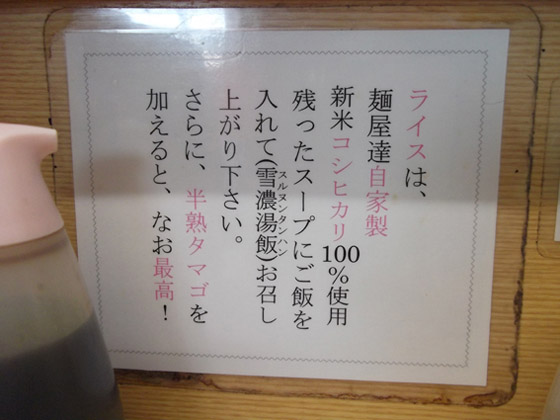 ライスは、
麺屋達自家製
新米コシヒカリ100%使用
残ったスープにご飯を
入れて(雪濃湯飯)お召し
スルヌンタンハン
上がり下さい。
さらに、半熟タマゴを
加えると、なお最高!